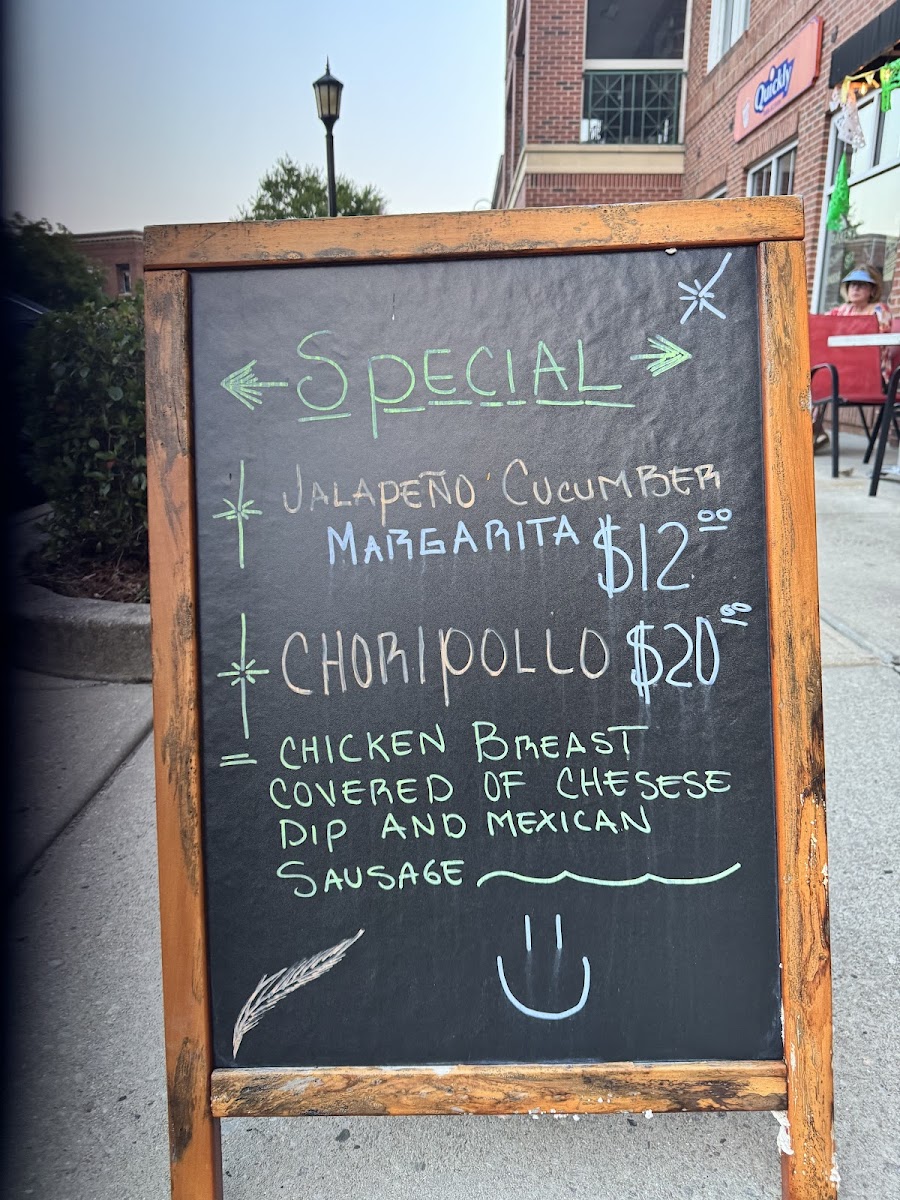 Quickly
Special
JALAPEÑO CUCUMBER
MARGARITA $12.00
CHORIPOLLO $20.00
CHICKEN BREAST
COVERED OF CHESESE
DIP AND MEXICAN
SAUSAGE